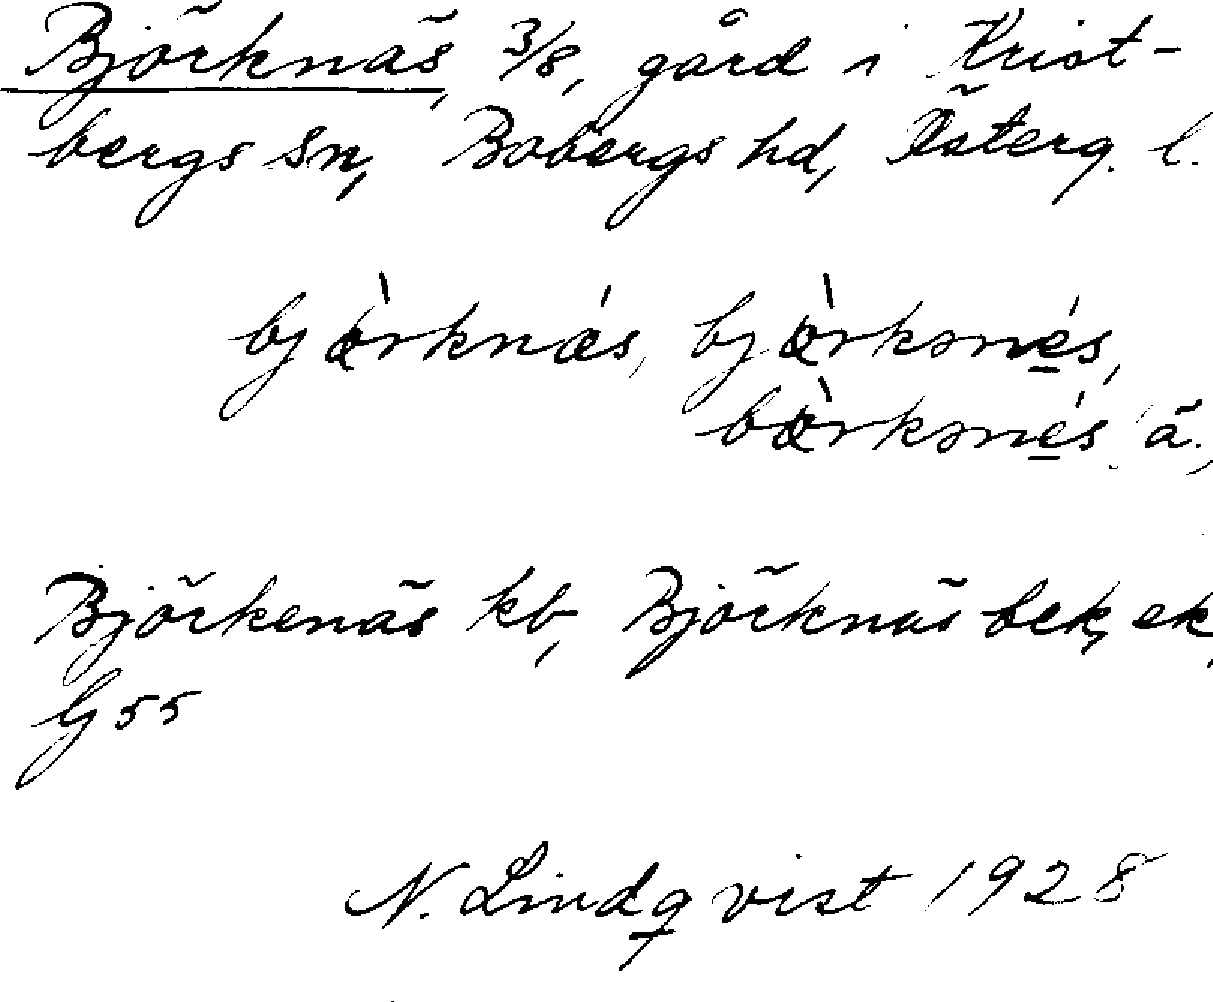 Björknäs, 3/8, gård i Krist-
bergs sn, Bobergs hd, Österg. l.
bjö̀rknǽs, bjö̀rkənés,
bö̀rkənés ä.,
Björkenäs kb, Björknäs bek, ek,
G 55
N. Lindqvist 1928